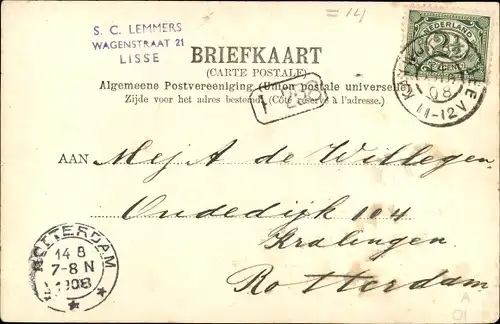 = 14
S. C. LEMMERS
WAGENSTRAAT 21
LISSE
NEDERLAND
2½
CENT
BRIEFKAART
(CARTE POSTALE)
Algemeene Postvereeniging (Union postale universelle)
Zijde voor het adres bestemd. (Côté réservé à l'adresse.)
08
11-12V
AAN Mej A de Willegen
Oudedijk 104
Kralingen
Rotterdam
ROTTERDAM
14 8
7-8 N
1908